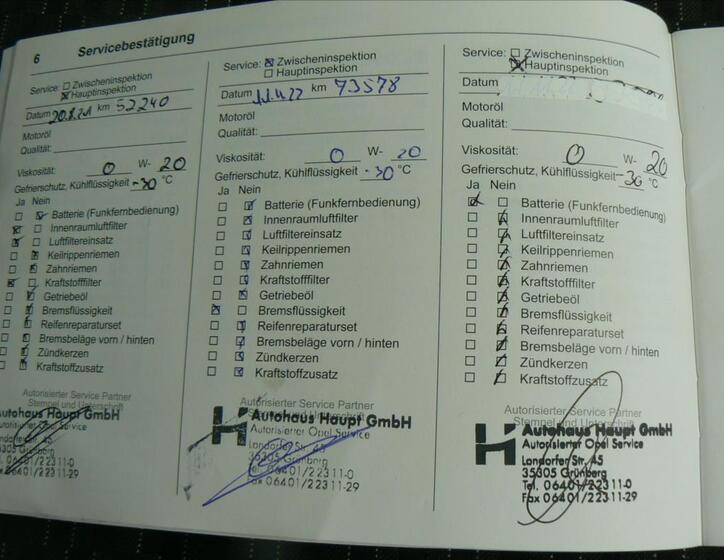 6 Servicebestätigung
Service: Zwischeninspektion
Hauptinspektion
Datum 20.8.21 km 52240
Motoröl
Qualität:
Viskosität: 0 W- 20
Gefrierschutz, Kühlflüssigkeit -30 °C
Ja Nein
Batterie (Funkfernbedienung)
Innenraumluftfilter
Luftfiltereinsatz
Keilrippenriemen
Zahnriemen
Kraftstofffilter
Getriebeöl
Bremsflüssigkeit
Reifenreparaturset
Bremsbeläge vorn / hinten
Zündkerzen
Kraftstoffzusatz
Autorisierter Service Partner
Stempel und Unterschrift
utohaus Haupt GmbH
utorisierter Opel Service
06401/22311-0
06401/22311-29
Service: Zwischeninspektion
Hauptinspektion
Datum 11.4.22 km 73578
Motoröl
Qualität:
Viskosität: 0 W- 20
Gefrierschutz, Kühlflüssigkeit -30 °C
Ja Nein
Batterie (Funkfernbedienung)
Innenraumluftfilter
Luftfiltereinsatz
Keilrippenriemen
Zahnriemen
Kraftstofffilter
Getriebeöl
Bremsflüssigkeit
Reifenreparaturset
Bremsbeläge vorn / hinten
Zündkerzen
Kraftstoffzusatz
Autorisierter Service Partner
Autohaus Haupt GmbH
Autorisierter Opel Service
Londorfer Str. 45
35305 Grünberg
Tel. 06401/22311-0
Fax 06401/22311-29
Service: Zwischeninspektion
Hauptinspektion
Datum
Motoröl
Qualität:
Viskosität: 0 W- 20
Gefrierschutz, Kühlflüssigkeit -30 °C
Ja Nein
Batterie (Funkfernbedienung)
Innenraumluftfilter
Luftfiltereinsatz
Keilrippenriemen
Zahnriemen
Kraftstofffilter
Getriebeöl
Bremsflüssigkeit
Reifenreparaturset
Bremsbeläge vorn / hinten
Zündkerzen
Kraftstoffzusatz
Autorisierter Service Partner
Stempel und
Autohaus Haupt GmbH
Autorisierter Opel Service
Londorfer Str. 45
35305 Grünberg
Tel. 06401/22311-0
Fax 06401/22311-29